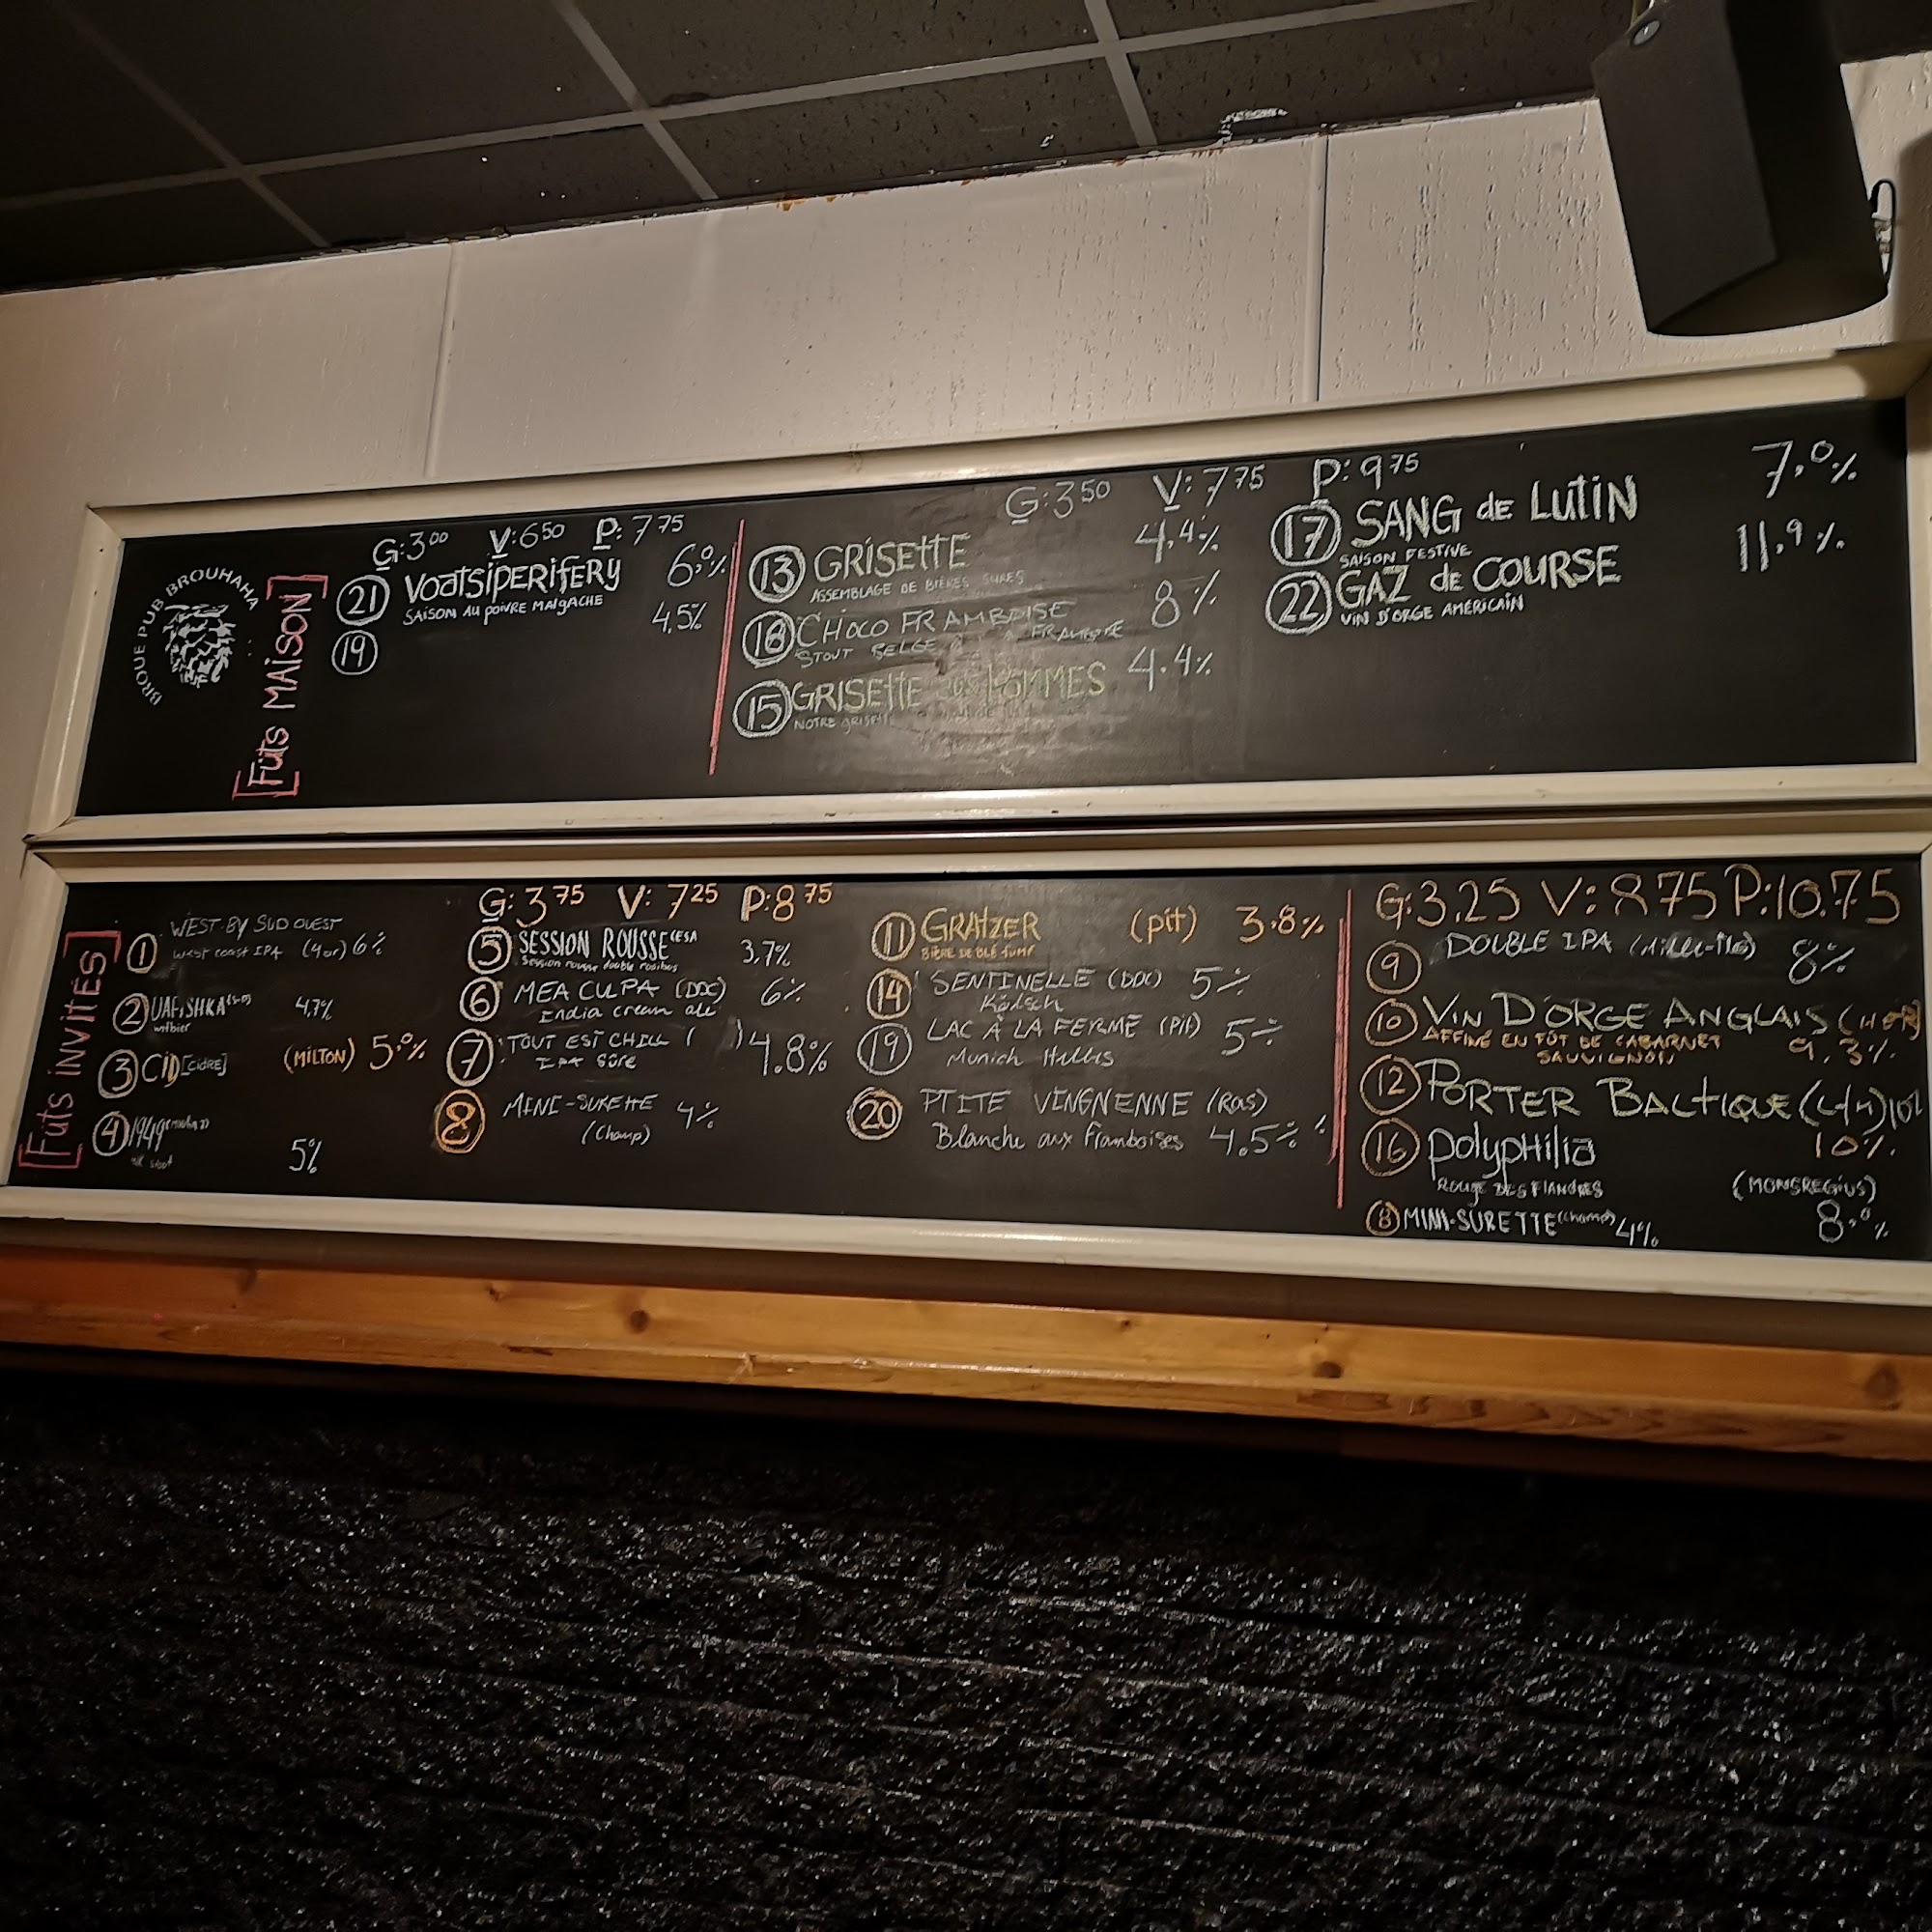 BROUE PUB BROUHAHA
[Fûts MAISON]
G: 3 00 V: 6 50 P: 7 75
21 VOATSIPERIFERY 6,0%
SAISON AU POIVRE MALGACHE
19 4,5%
G: 3 50 V: 7 75 P: 9 75
13 GRISETTE 4,4%
ASSEMBLAGE DE BIÈRES SURES
18 CHOCO FRAMBOISE 8%
STOUT BELGE FRAMBOISE
15 GRISETTE AUX POMMES 4.4%
NOTRE GRISETTE
17 SANG de LUTIN 7,0%
SAISON FESTIVE
22 GAZ de COURSE 11,9%
VIN D'ORGE AMÉRICAIN
[Fûts INVITÉS]
1 WEST BY SUD OUEST
West coast IPA (4or) 6%
2 4,7%
witbier
3 CID [CIDRE] (MILTON) 5,0%
4 1949
5%
G: 3 75 V: 7 25 P: 8 75
5 SESSION ROUSSE 3,7%
Session rousse double rooibos
6 MEA CULPA (DDC) 6%
India cream ale
7 TOUT EST CHILL ( ) 4.8%
IPA Sûre
8 MINI-SURETTE 4%
(Champ)
11 GRATZER (pit) 3.8%
BIÈRE DE BLÉ FUMÉ
14 SENTINELLE (DDC) 5%
Kölsch
19 LAC À LA FERME (Pit) 5%
Munich Helles
20 PTITE VINGNENNE (Ras)
Blanche aux framboises 4.5%
G: 3.25 V: 8 75 P: 10.75
9 DOUBLE IPA 8%
10 VIN D'ORGE ANGLAIS
AFFINÉ EN FÛT DE CABARNET
SAUVIGNON 9.3%
12 PORTER BALTIQUE
10%
16 POLYPHILIA
ROUGE DES FLANDRES (MONSREGIUS)
8,0%
8 MINI-SURETTE (Champ) 4%